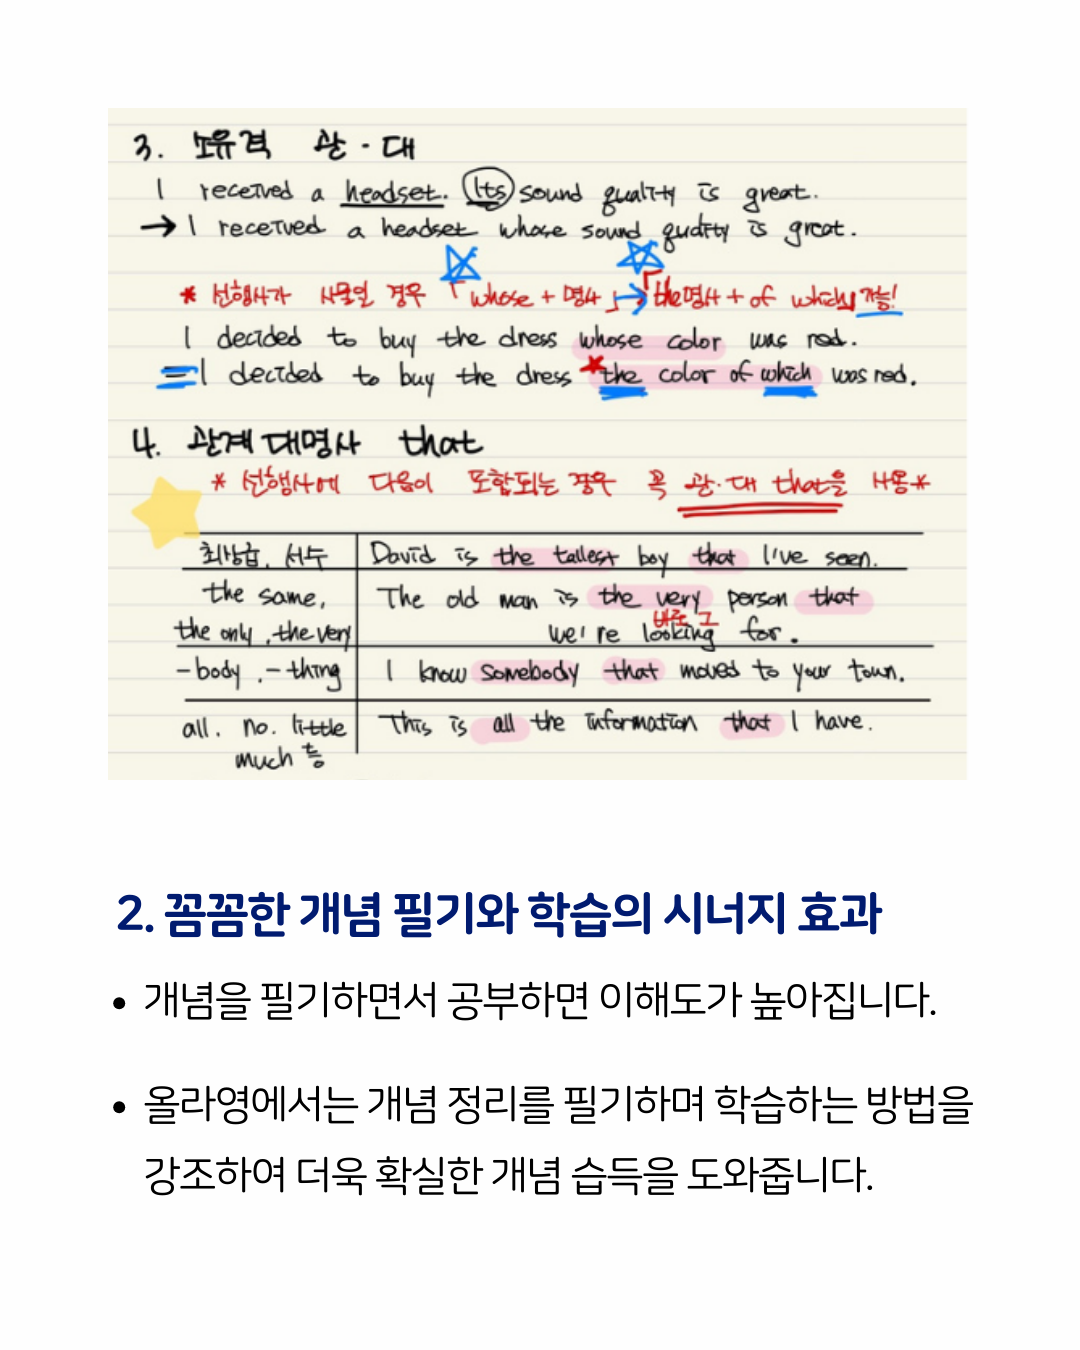 3. 소유격 관·대
I received a headset. Its sound quality is great.
→ I received a headset whose sound quality is great.
* 선행사가 사물일 경우 「whose + 명사」 → 「the 명사 + of which」 가능!
I decided to buy the dress whose color was red.
= I decided to buy the dress *the color of which was red.
4. 관계대명사 that
* 선행사에 다음이 포함되는 경우 꼭 관·대 that을 사용 *
최상급, 서수 David is the tallest boy that I've seen.
the same, The old man is the very person that
바로 그
the only, the very we're looking for.
-body, -thing I know somebody that moved to your town.
all. no. little This is all the information that I have.
much 등
2. 꼼꼼한 개념 필기와 학습의 시너지 효과
• 개념을 필기하면서 공부하면 이해도가 높아집니다.
• 올라영에서는 개념 정리를 필기하며 학습하는 방법을
강조하여 더욱 확실한 개념 습득을 도와줍니다.